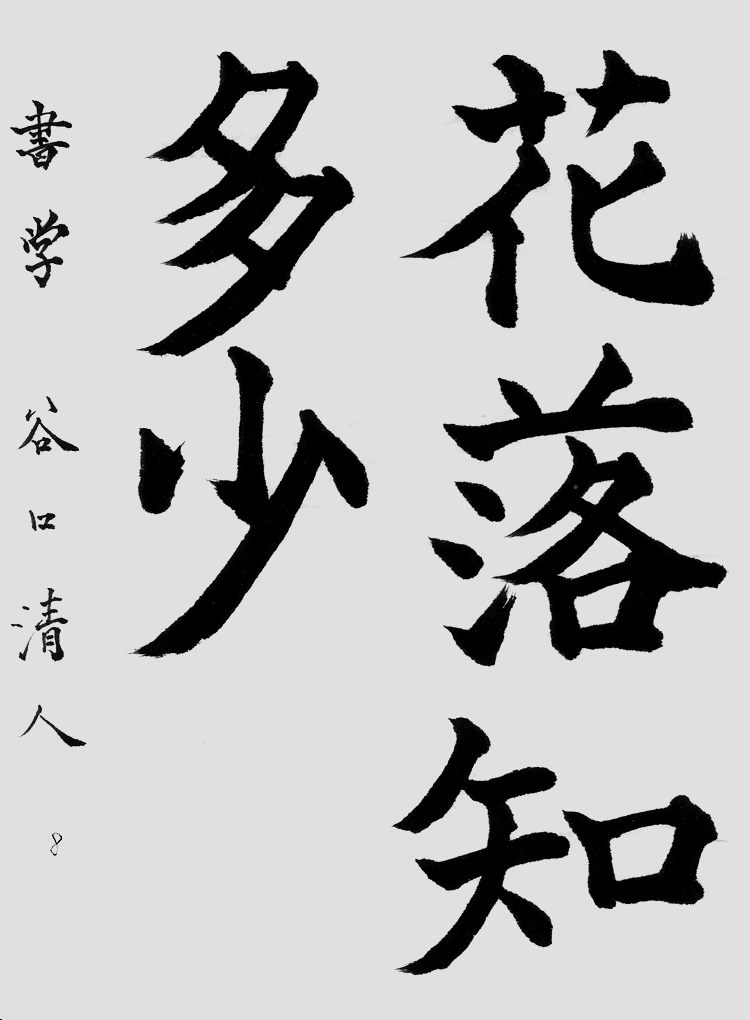 花落知
多少
書学 谷口清人
8